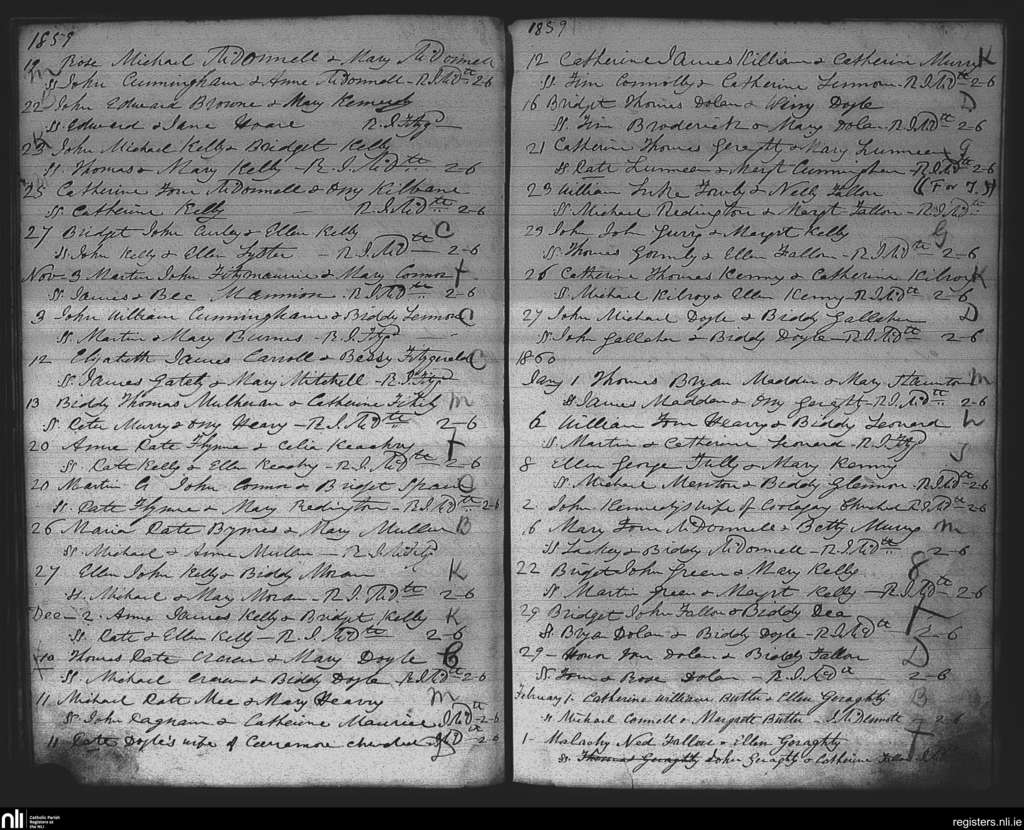 1859
19 Rose Michael McDonnell & Mary McDonnell
SS. John Cunningham & Anne McDonnell - R.J. McDtt 2-6
22 John Edward Browne & Mary
SS. Edward & Jane Hoare R.J. Fitzg
23 John Michael Kelly & Bridget Kelly
SS. Thomas & Mary Kelly - R.J. McDtt 2-6
25 Catherine Tom McDonnell & Ony Kilbane
SS. Catherine Kelly - R.J. McDtt 2-6
27 Bridget John Curley & Ellen Kelly C
SS. John Kelly & Ellen Lyster - R.J. McDtt 2-6
Nov 3 Martin John Fitzmaurice & Mary Connor F
SS. James & Bec Mannion R.J. McDtt 2-6
9 John William Cunningham & Biddy Lennon C
SS. Martin & Mary Burns - R.J. Fitzg
12 Elizabeth James Carroll & Bessy Fitzgerald C
SS. James Gately & Mary Mitchell - R.J. Fitzg
13 Biddy Thomas & Catherine M
SS. Peter Murry & Ony Heavy - R.J. McDtt 2-6
20 Anne Pate Flynne & Celia F
SS. Pate Kelly & Ellen - R.J. McDtt 2-6
20 Martin G. John Connor & Bridget C
SS. Pate Flynne & Mary Redington - R.J. McDtt 2-6
26 Maria Pate Byrnes & Mary Mullen B
SS. Michael & Anne Mullen - R.J. Fitzg
27 Ellen John Kelly & Biddy Moran K
SS. Michael & Mary Moran - R.J. McDtt 2-6
Dec - 2. Anne James Kelly & Bridget Kelly K
SS. Pate & Ellen Kelly - R.J. McDtt 2-6
10 Thomas Pate & Mary Doyle C
SS. Michael & Biddy Doyle R.J. McDtt 2-6
11 Michael Pate Mee & Mary Heavy M
SS. John & Catherine J. McDtt 2-6
11 Pate Doyle's wife of churched J McD 2-6
1859
12 Catherine James Killian & Catherine Murry K
SS. Tim Connolly & Catherine Lennon - R.J. McDtt 2-6
16 Bridget Thomas Dolan & Winny Doyle D
SS. Tim Broderick & Mary Dolan R.J. McDtt 2-6
21 Catherine Thomas & Mary G
SS. Pate & Margt Cunningham R.J. McDtt 2-6
23 William Luke & Nelly Fallon
SS. Michael Redington & Margt Fallon - R.J. McDtt
23 John John & Margt Kelly G
SS. Thomas & Ellen Fallon - R.J. McDtt 2-6
26 Catherine Thomas Kenny & Catherine Kilroy K
SS. Michael Kilroy & Ellen Kenny - R.J. McDtt 2-6
27 John Michael Doyle & Biddy Gallaher D
SS. John Gallaher & Biddy Doyle - R.J. McDtt 2-6
1860
Jany 1 Thomas Bryan Madden & Mary Staunton M
SS. James Madden & Ony - R.J. McDtt 2-6
6 William Tom Heavy & Biddy Leonard
SS. Martin & Catherine Leonard - R.J. Fitzg
8 Ellen George Tully & Mary Kenny
SS. Michael & Biddy Glennon - R.J. McDtt 2-6
2 John Kennedy's wife of churched R.J. McDtt 2-6
6 Mary Tom McDonnell & Betty Murry M
SS. Lackey & Biddy McDonnell - R.J. McDtt 2-6
22 Bridget John Green & Mary Kelly
SS. Martin Green & Margt Kelly - R.J. McDtt 2-6
29 Bridget John Fallon & Biddy Dea F
SS. Bryan Dolan & Biddy Doyle - R.J. McDtt 2-6
29 - Honor Tom Dolan & Biddy Fallon D
SS. Tom & Rose Dolan - R.J. McDtt 2-6
February 1. Catherine William Butler & Ellen Geraghty B
SS Michael Connell & Margrett Butler - J. McDermott 2-6
1 - Malachy Ned Fallon & Ellen Geraghty F
SS. Thomas Geraghty John Geraghty & Catherine Fallon
nli Catholic Parish
Registers at
the NLI
registers.nli.ie